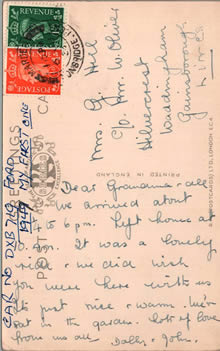 REVENUE
REVENUE
Mrs. G. Hill
c/o Mr. W. Oliver
Hillcrest
Waddingham
Gainsborough
PRINTED IN ENGLAND
LTD., LONDON, E.C.4.
Dear Grandma & all
we arrived about
to 6 p.m. Left home at
It was a lovely
ride & we did wish
you were here with us
its just nice & warm. We've
sat in the garden. Lots of love
from us all. Dolly & John.
CAR NO DXB 710. FORD
1949 MY FIRST ONE